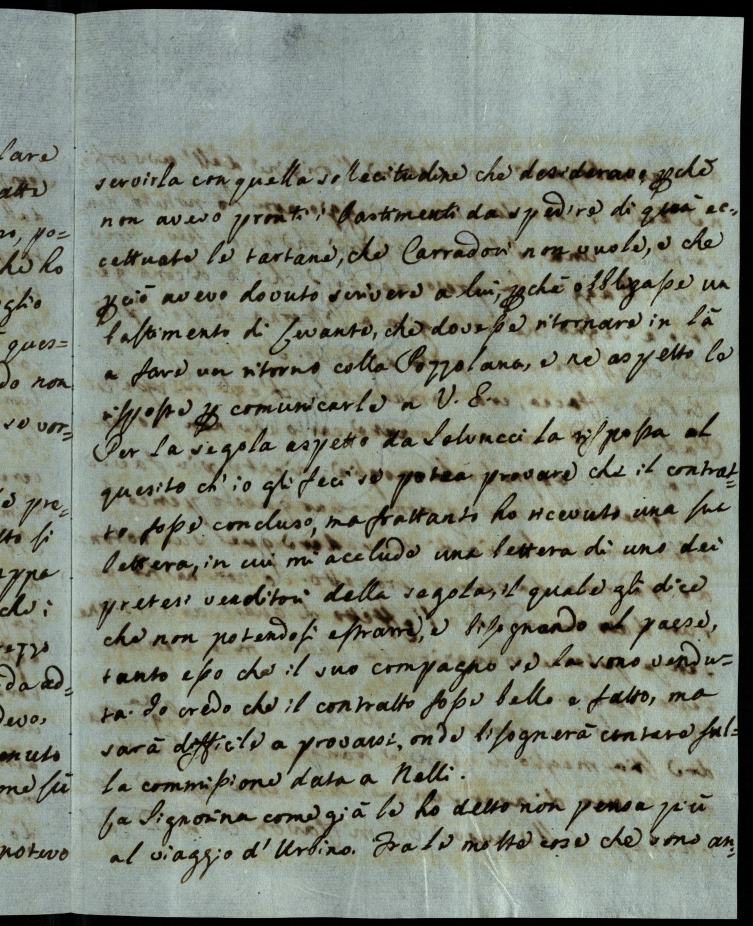 lare
servirla con quella sollecitudine che desiderava, pchè
non avevo pronti i bastimenti da spedire di quà ec=
cettuate le tartane, che Carradori non vuole, e che
pciò avevo dovuto scrivere a lui, pchè obbligasse un
bastimento di Levante, che dovesse ritornare in là
a fare un ritorno colla Pozzolana, e ne aspetto le
risposte p comunicarle a V. E.
Per la segola aspetto da Salvucci la risposta al
quesito ch' io gli feci se potea provare che il contrat=
to fosse concluso, ma frattanto ho ricevuto una sua
lettera, in cui mi acclude una lettera di uno dei
pretesi venditori della segola, il quale gli dice
che non potendosi estrarre, e bisognando al paese,
tanto esso che il suo compagno se la sono vendu=
ta. Io credo che il contratto fosse bello e fatto, ma
sarà difficile a provarsi, onde bisognerà contare sul=
la commissione data a Nelli.
La Signorina come già le ho detto non pensa più
al viaggio d' Urbino. Fra le molte cose che sono an=
atte
so, po=
he ho
oglio
ques=
do non
se vor=
pre=
tto si
appa
che i
rezzo
da ad=
devo,
enuto
me sù
potevo